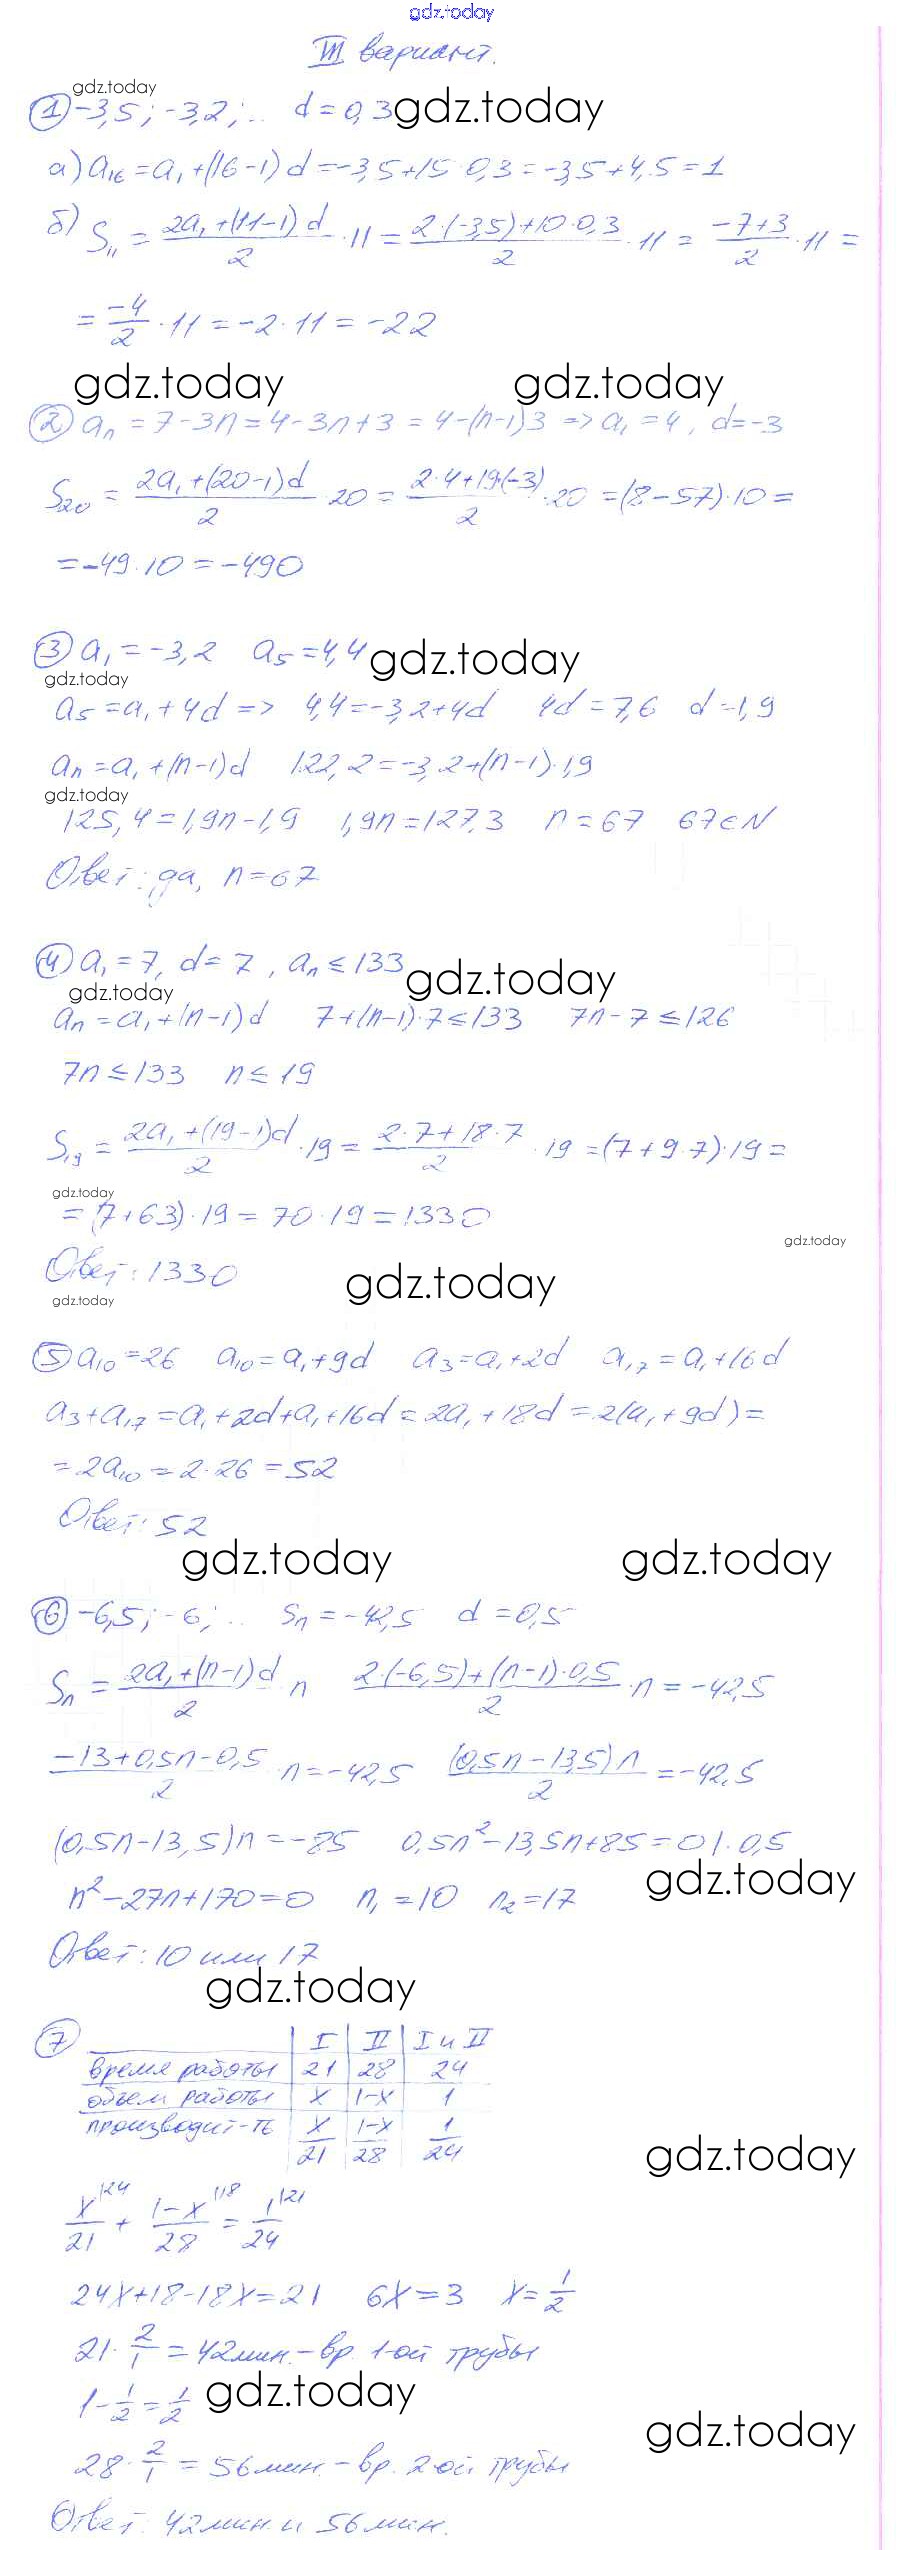 gdz.today
III вариант.
gdz.today
① -3,5; -3,2; .. d = 0,3 gdz.today
а) a₁₆ = a₁ + (16-1) d = -3,5 + 15·0,3 = -3,5 + 4,5 = 1
б) S₁₁ = (2a₁ + (11-1) d)/2 · 11 = (2·(-3,5) + 10·0,3)/2 · 11 = (-7+3)/2 · 11 =
= -4/2 · 11 = -2·11 = -22
gdz.today gdz.today
② aₙ = 7-3n = 4-3n+3 = 4-(n-1)3 => a₁ = 4, d = -3
S₂₀ = (2a₁ + (20-1)d)/2 · 20 = (2·4 + 19·(-3))/2 · 20 = (8-57)·10 =
= -49·10 = -490
③ a₁ = -3,2 a₅ = 4,4 gdz.today
gdz.today
a₅ = a₁ + 4d => 4,4 = -3,2 + 4d 4d = 7,6 d = 1,9
aₙ = a₁ + (n-1)d 122,2 = -3,2 + (n-1)·1,9
gdz.today
125,4 = 1,9n - 1,9 1,9n = 127,3 n = 67 67 ∈ N
Ответ: да, n = 67
④ a₁ = 7, d = 7, aₙ ≤ 133 gdz.today
gdz.today
aₙ = a₁ + (n-1)d 7 + (n-1)·7 ≤ 133 7n - 7 ≤ 126
7n ≤ 133 n ≤ 19
S₁₉ = (2a₁ + (19-1)d)/2 · 19 = (2·7 + 18·7)/2 · 19 = (7 + 9·7)·19 =
gdz.today
= (7+63)·19 = 70·19 = 1330
gdz.today
Ответ: 1330 gdz.today
gdz.today
⑤ a₁₀ = 26 a₁₀ = a₁ + 9d a₃ = a₁ + 2d a₁₇ = a₁ + 16d
a₃ + a₁₇ = a₁ + 2d + a₁ + 16d = 2a₁ + 18d = 2(a₁ + 9d) =
= 2a₁₀ = 2·26 = 52
Ответ: 52
gdz.today gdz.today
⑥ -6,5; -6; .. Sₙ = -42,5 d = 0,5
Sₙ = (2a₁ + (n-1)d)/2 n (2·(-6,5) + (n-1)·0,5)/2 · n = -42,5
(-13 + 0,5n - 0,5)/2 · n = -42,5 ((0,5n - 13,5) n)/2 = -42,5
(0,5n - 13,5)n = -85 0,5n² - 13,5n + 85 = 0 | · 0,5
gdz.today
n² - 27n + 170 = 0 n₁ = 10 n₂ = 17
Ответ: 10 или 17
gdz.today
⑦ I II I и II
время работы 21 28 24
объем работы x 1-x 1
производит-ть x/21 (1-x)/28 1/24
gdz.today
x/21 |24 + (1-x)/28 |18 = 1/24 |21
24x + 18 - 18x = 21 6x = 3 x = 1/2
21 · 2/1 = 42 мин. - вр. 1-ой трубы
1 - 1/2 = 1/2 gdz.today
gdz.today
28 · 2/1 = 56 мин. - вр. 2-ой трубы
Ответ: 42 мин. и 56 мин.